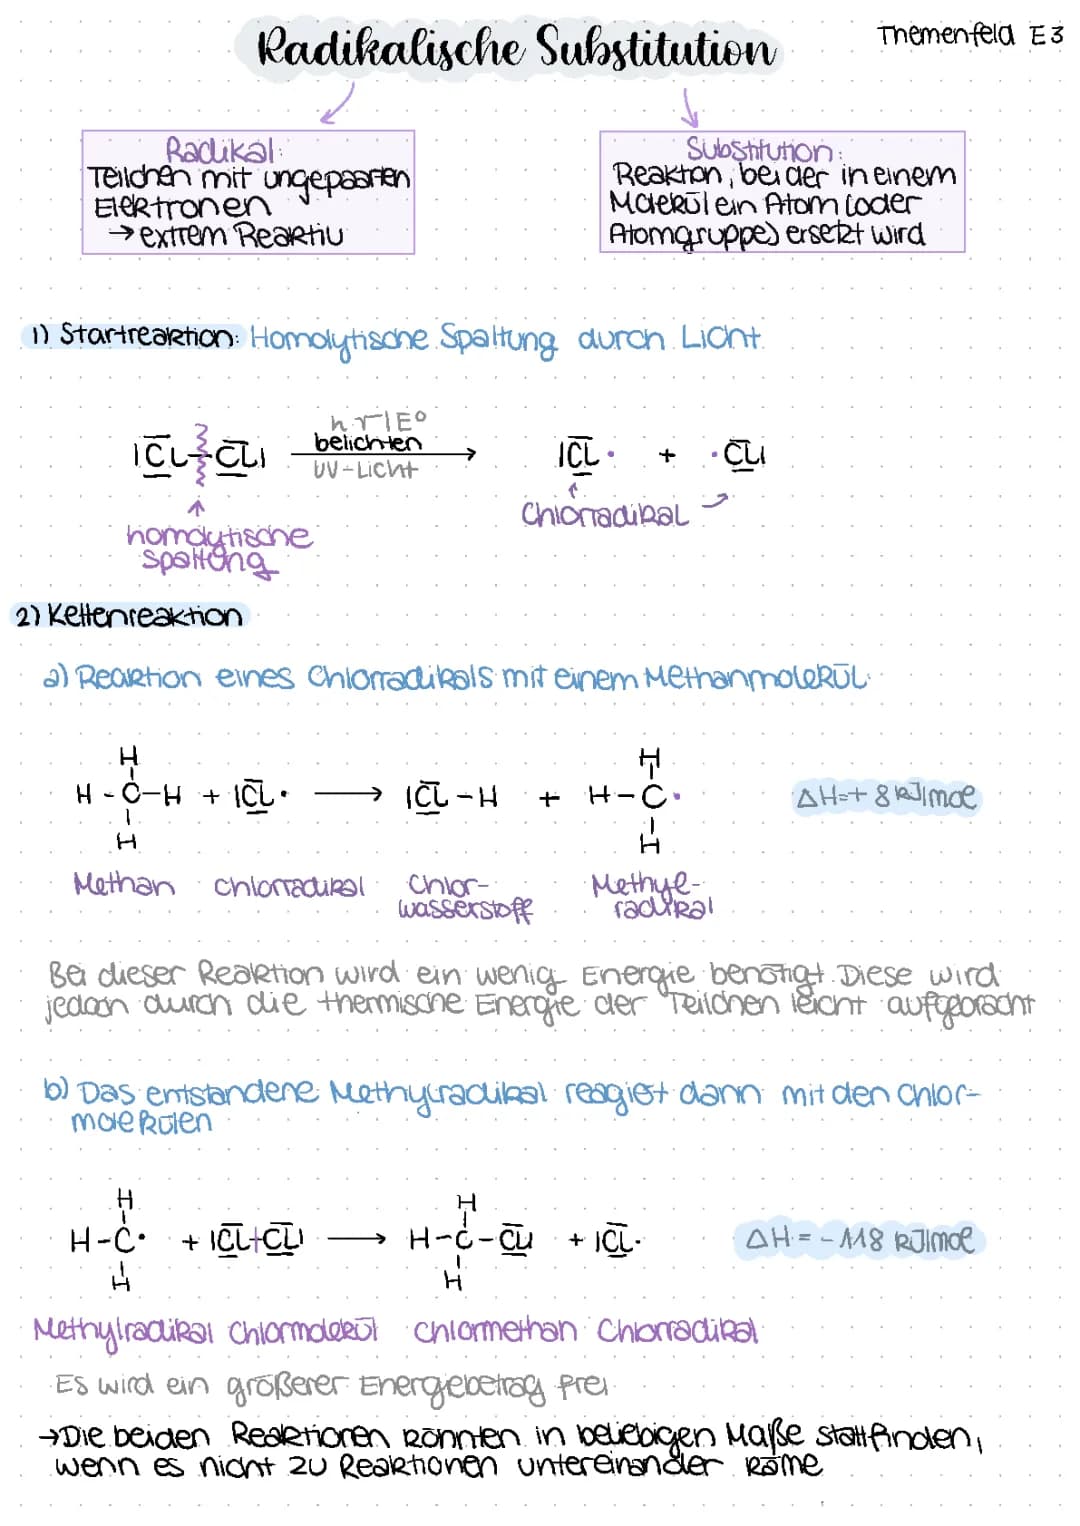 Radikalische Substitution
Themenfeld E3
Radikal:
Teilchen mit ungepaarten
Elektronen
→ extrem Reaktiv
Substitution:
Reaktion, bei der in einem
Molekül ein Atom (oder
Atomgruppe) ersetzt wird
1) Startreaktion: Homolytische Spaltung durch Licht
belichten
UV-Licht
|CL-CL| → |CL· + ·CL|
Chlorradikal
homolytische
Spaltung
2) Kettenreaktion
a) Reaktion eines Chlorradikals mit einem Methanmolekül
H H
H-C-H + |CL· → |CL-H + H-C· ΔH=+8 kJ/mol
H H
Methan Chlorradikal Chlor- Methyl-
wasserstoff radikal
Bei dieser Reaktion wird ein wenig Energie benötigt. Diese wird
jedoch durch die thermische Energie der Teilchen leicht aufgebracht
b) Das entstandene Methylradikal reagiert dann mit den Chlor-
molekülen
H H
H-C· + |CL-CL| → H-C-CL| + |CL· ΔH = -118 kJ/mol
H H
Methylradikal Chlormolekül Chlormethan Chlorradikal
Es wird ein größerer Energiebetrag frei
→Die beiden Reaktionen könnten in beliebigen Maße stattfinden,
wenn es nicht zu Reaktionen untereinander käme